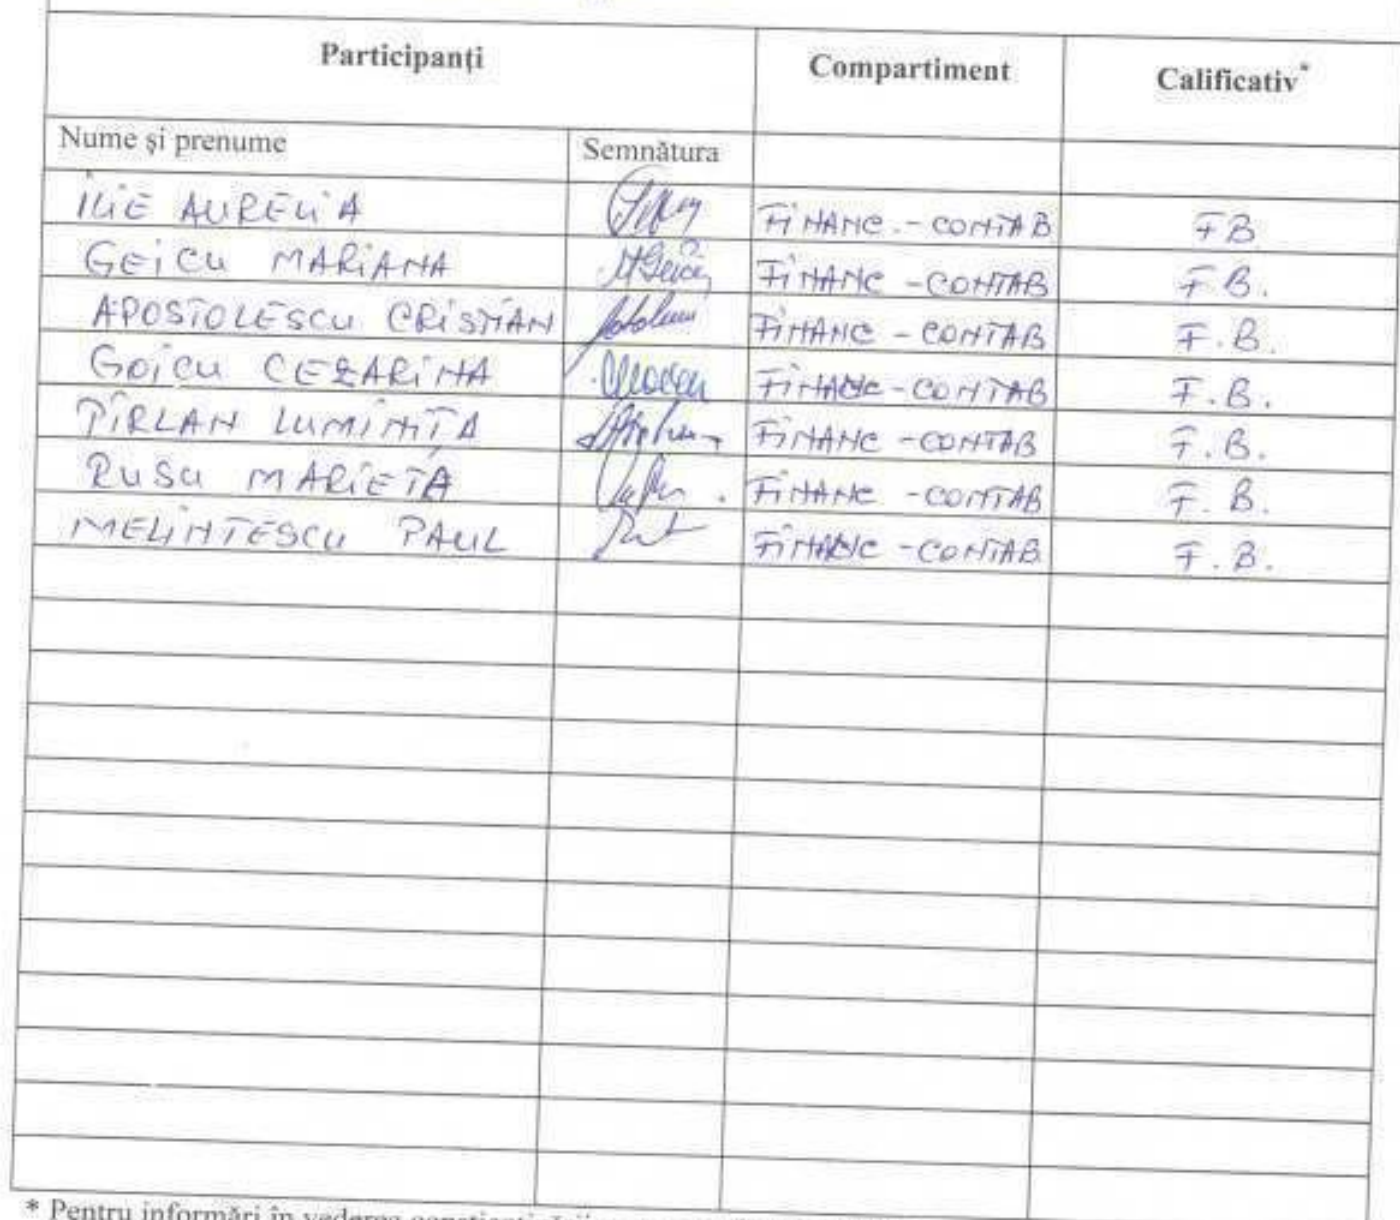 Participanți Compartiment Calificativ*
Nume și prenume Semnătura
ILIE AURELIA FINANC.-CONTAB FB
GEICU MARIANA FINANC-CONTAB F.B.
APOSTOLESCU CRISTIAN FINANC-CONTAB F.B.
GOICU CEZARINA FINANC-CONTAB F.B.
PÎRLAN LUMINIȚA FINANC-CONTAB F.B.
RUSU MARIETA FINANC-CONTAB F.B.
MELINTESCU PAUL FINANC-CONTAB F.B.
* Pentru informări în vederea